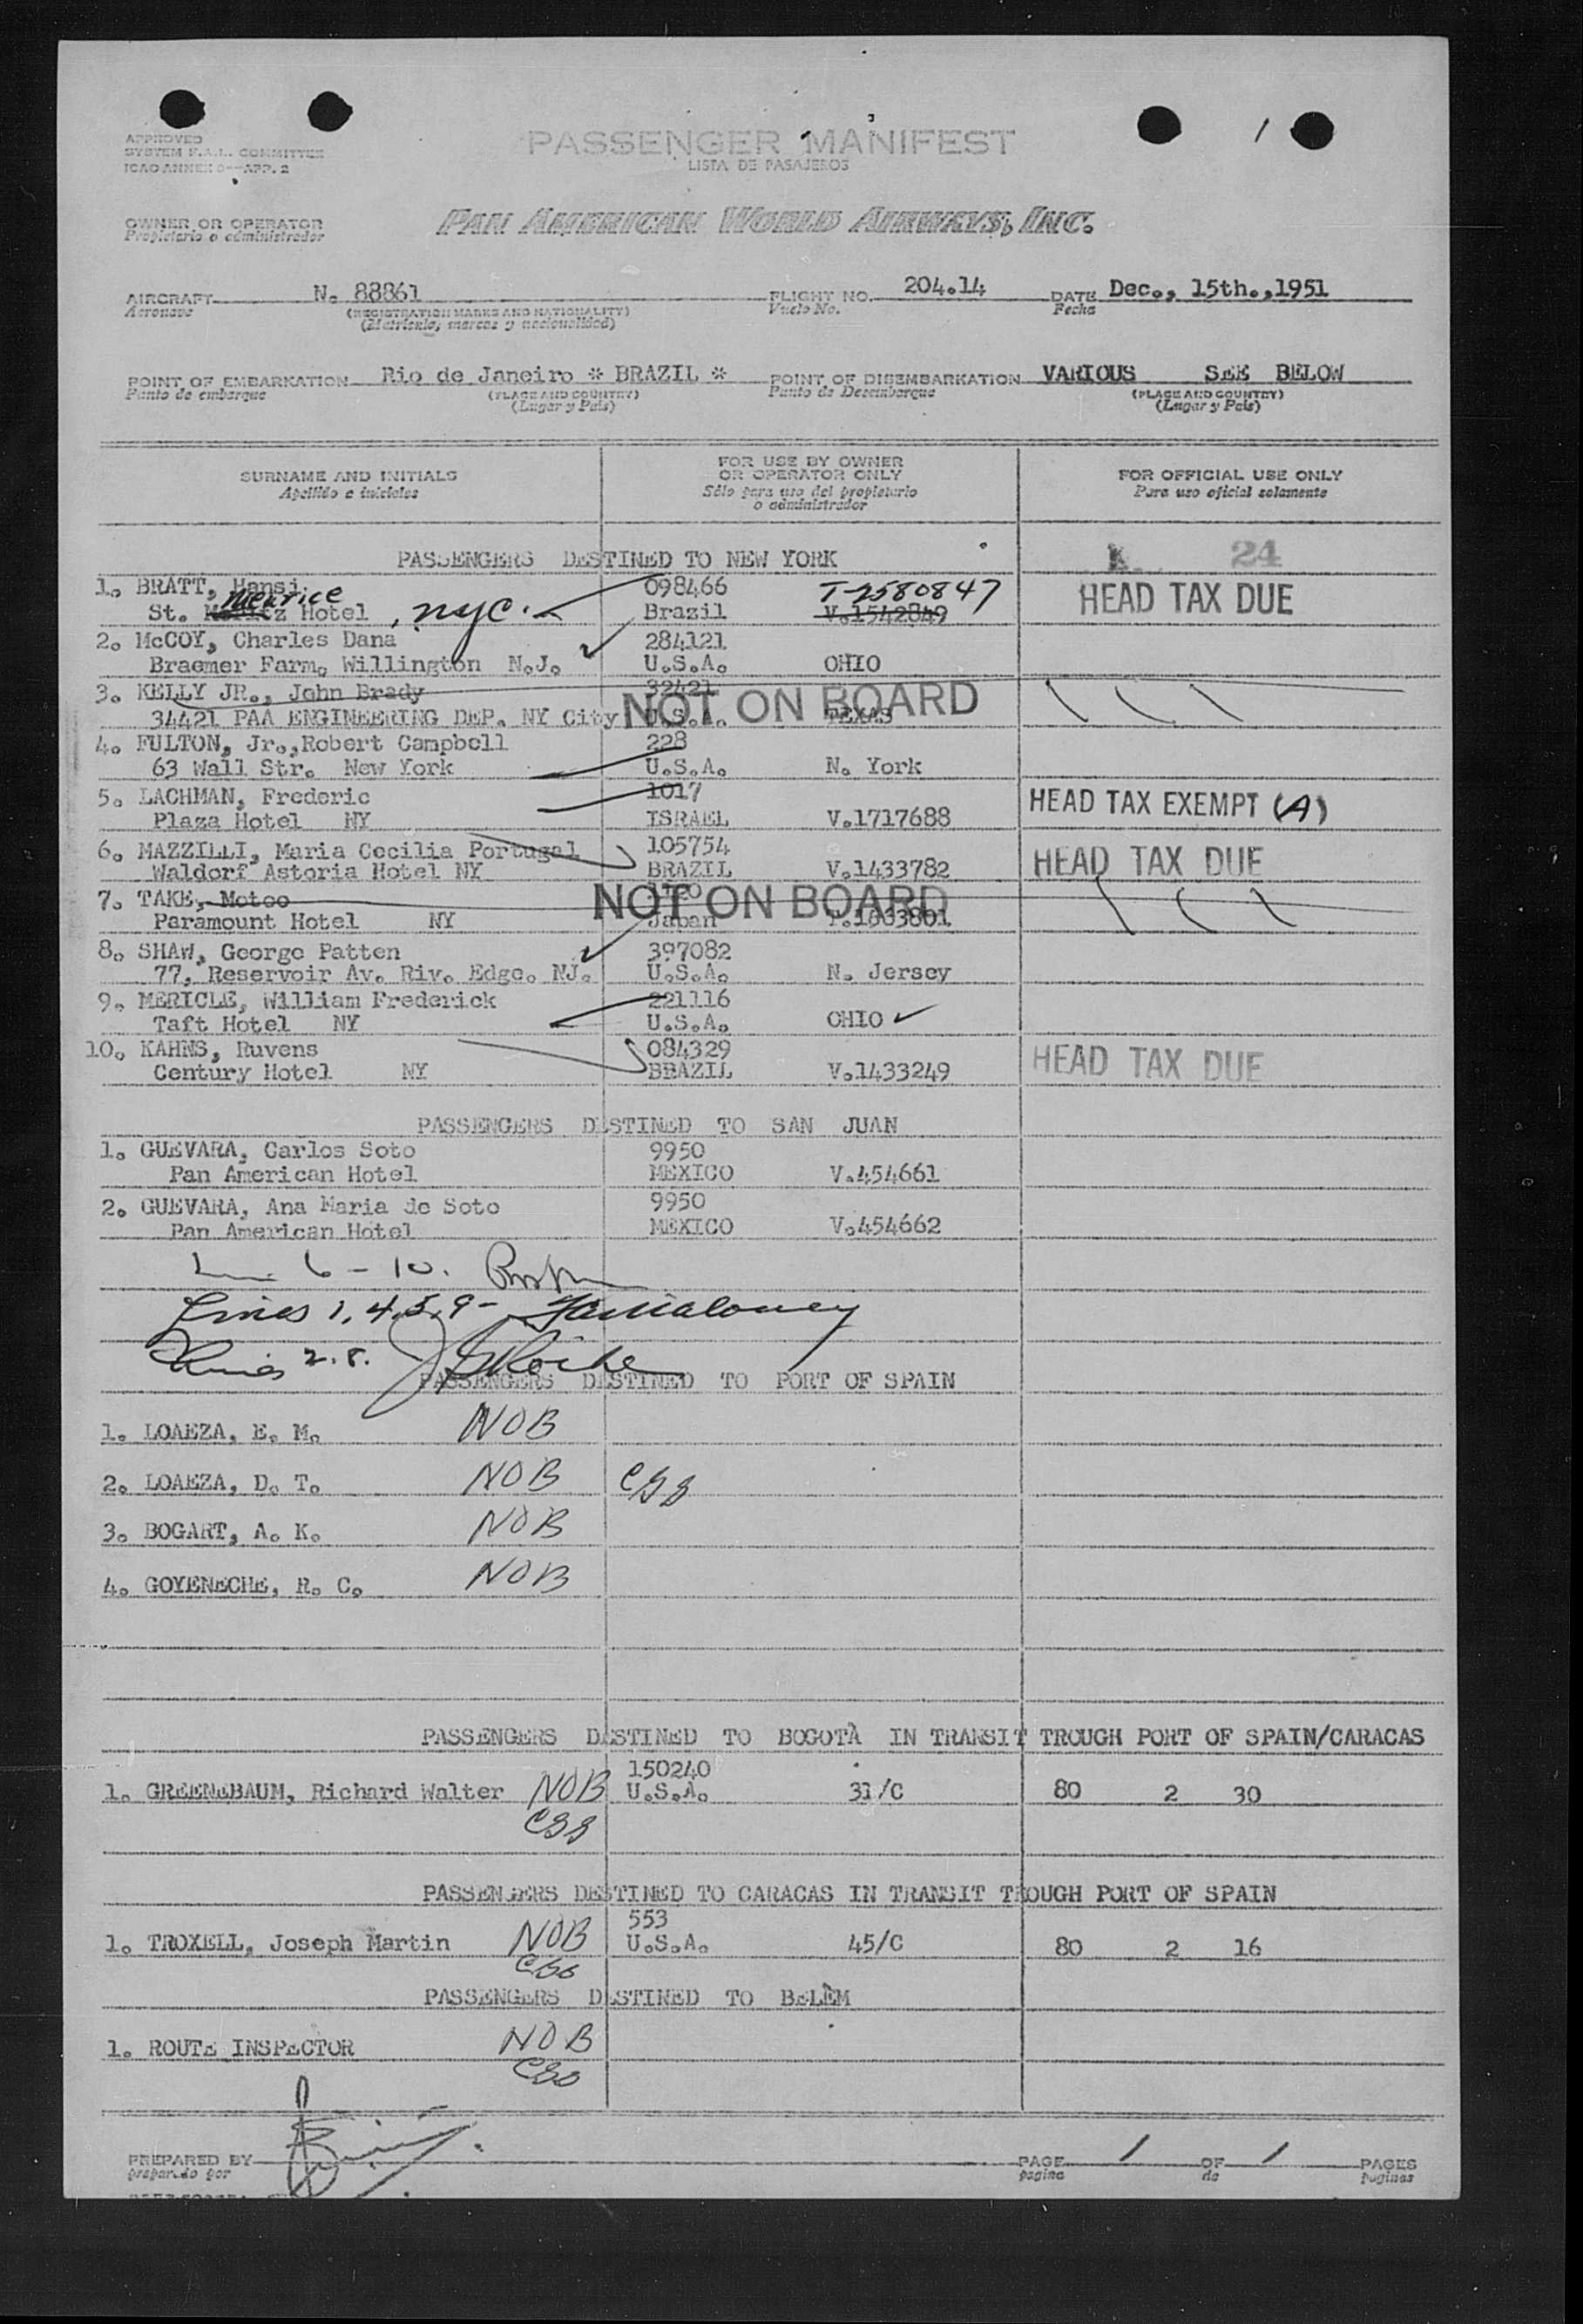 APPROVED
SYSTEM F.A.L. COMMITTEE
ICAO ANNEX 9—APP. 2
PASSENGER MANIFEST
LISTA DE PASAJEROS
OWNER OR OPERATOR
Propietario o administrador
PAN AMERICAN WORLD AIRWAYS, INC.
AIRCRAFT N. 88861 FLIGHT NO. 204.14 DATE Dec., 15th.,1951
Aeronave (REGISTRATION MARKS AND NATIONALITY) Vuelo No. Fecha
(Matrícula, marcas y nacionalidad)
POINT OF EMBARKATION Rio de Janeiro * BRAZIL * POINT OF DISEMBARKATION VARIOUS SEE BELOW
Punto de embarque (PLACE AND COUNTRY) Punto de Desembarque (PLACE AND COUNTRY)
(Lugar y País) (Lugar y País)
SURNAME AND INITIALS FOR USE BY OWNER OR OPERATOR ONLY FOR OFFICIAL USE ONLY
Apellido e iniciales Sólo para uso del propietario o administrador Para uso oficial solamente
PASSENGERS DESTINED TO NEW YORK 24
1. BRATT, Hansi 098466 T-2580847 HEAD TAX DUE
St. Moritz Meurice Hotel, nyc. Brazil V.1542849
2. McCOY, Charles Dana 284121
Braemer Farm. Willington N.J. U.S.A. OHIO
3. KELLY JR., John Brady 32421 NOT ON BOARD
34421 PAA ENGINEERING DEP. NY City U.S.A. TEXAS
4. FULTON, Jr.,Robert Campbell 228
63 Wall Str. New York U.S.A. N. York
5. LACHMAN, Frederic 1017 HEAD TAX EXEMPT (A)
Plaza Hotel NY ISRAEL V.1717688
6. MAZZILLI, Maria Cecilia Portugal 105754 HEAD TAX DUE
Waldorf Astoria Hotel NY BRAZIL V.1433782
7. TAKE, Motoo NOT ON BOARD
Paramount Hotel NY Japan
8. SHAW, George Patten 397082
77, Reservoir Av. Riv. Edge. NJ. U.S.A. N. Jersey
9. MERICLE, William Frederick 221116
Taft Hotel NY U.S.A. OHIO
10. KAHNS, Ruvens 084329 HEAD TAX DUE
Century Hotel NY BRAZIL V.1433249
PASSENGERS DESTINED TO SAN JUAN
1. GUEVARA, Carlos Soto 9950
Pan American Hotel MEXICO V.454661
2. GUEVARA, Ana Maria de Soto 9950
Pan American Hotel MEXICO V.454662
6 - 10.
Lines 1, 4, 5, 9 -
Lines 2. 8.
PASSENGERS DESTINED TO PORT OF SPAIN
1. LOAEZA, E. M. NOB
2. LOAEZA, D. T. NOB
3. BOGART, A. K. NOB
4. GOYENECHE, R. C. NOB
PASSENGERS DESTINED TO BOGOTÀ IN TRANSIT TROUGH PORT OF SPAIN/CARACAS
150240
1. GREENEBAUM, Richard Walter NOB U.S.A. 31/C 80 2 30
PASSENGERS DESTINED TO CARACAS IN TRANSIT TROUGH PORT OF SPAIN
553
1. TROXELL, Joseph Martin NOB U.S.A. 45/C 80 2 16
PASSENGERS DESTINED TO BELÈM
1. ROUTE INSPECTOR NOB
PREPARED BY PAGE 1 OF 1 PAGES
preparado por pagina de paginas